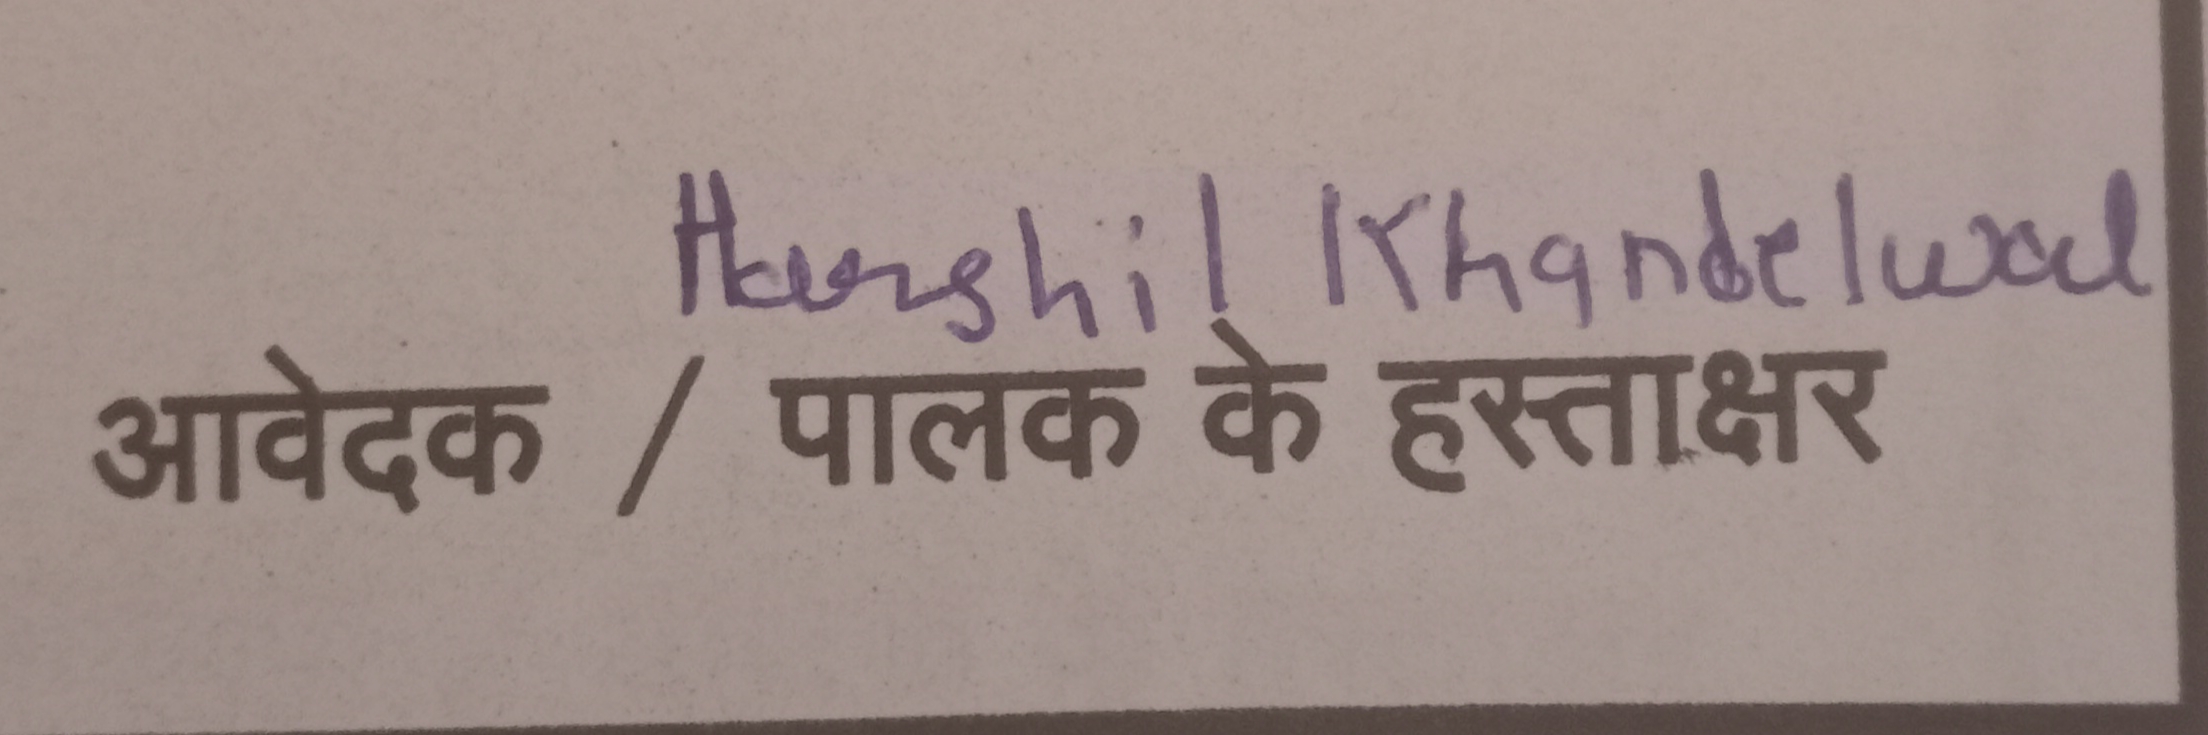 Harshil Khandelwal
आवेदक / पालक के हस्ताक्षर